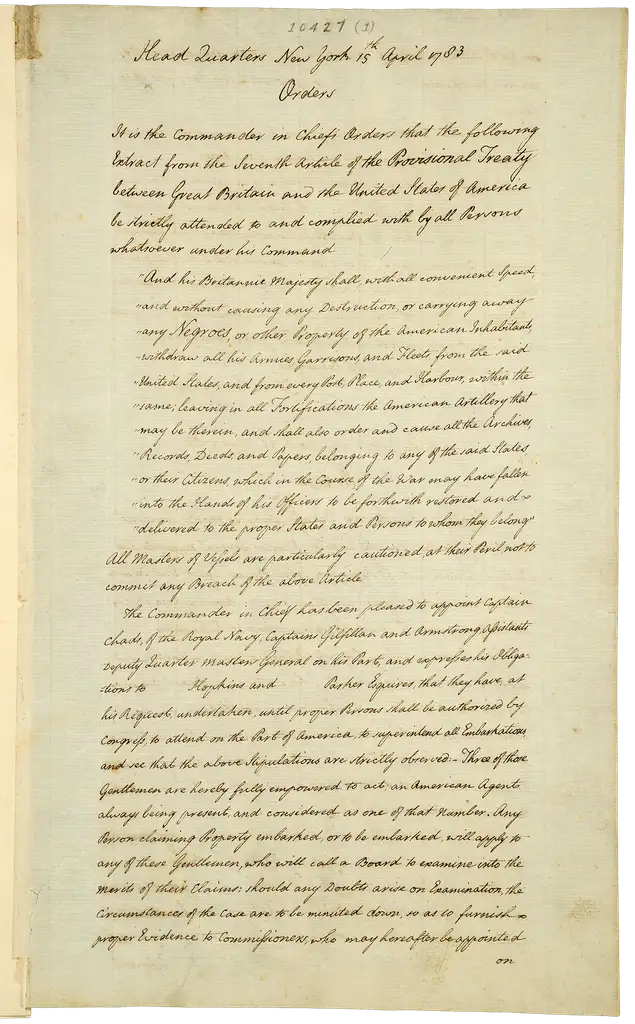 10427 (1)
Head Quarters New York 15th April 1783
Orders
It is the Commander in Chiefs Orders that the following
Extract from the Seventh Article of the Provisional Treaty
between Great Britain and the United States of America
be strictly attended to and complied with by all Persons
whatsoever under his Command
"And his Britannic Majesty shall, with all convenient Speed,
"and without causing any Destruction, or carrying away
"any Negroes, or other Property of the American Inhabitants,
"withdraw all his Armies, Garrisons, and Fleets, from the said
"United States, and from every Post, Place, and Harbour, within the
"same; leaving in all Fortifications the American Artillery that
"may be therein, and shall also order and cause all the Archives,
"Records, Deeds, and Papers, belonging to any of the said States
"or their Citizens, which in the Course of the War may have fallen
"into the Hands of his Officers to be forthwith restored and
"delivered to the proper States and Persons to whom they belong"
All Masters of Vessels are particularly cautioned, at their Peril not to
commit any Breach of the above Article
The Commander in Chief has been pleased to appoint Captain
Chads, of the Royal Navy, Captains Gilfillan and Armstrong, Assistants
Deputy Quarter Masters General on his Part, and expresses his Obliga-
-tions to Hopkins and Parker Esquires, that they have, at
his Request, undertaken, until proper Persons shall be authorized by
Congress, to attend on the Part of America, to superintend all Embarkations,
and see that the above Stipulations are strictly observed:- Three of those
Gentlemen are hereby fully empowered to act: an American Agent
always being present, and considered as one of that Number. Any
Person claiming Property embarked, or to be embarked, will apply to
any of these Gentlemen, who will call a Board to examine into the
Merits of their Claims; should any Doubts arise on Examination, the
Circumstances of the Case are to be minuted down, so as to furnish
proper Evidence to Commissioners, who may hereafter be appointed
on